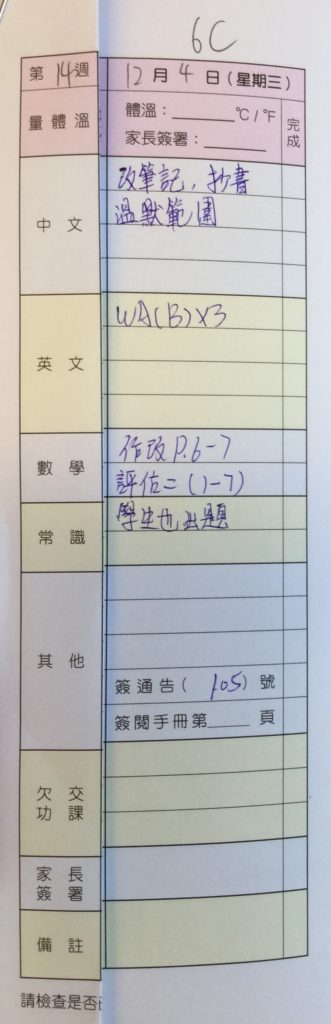 6C
第 14 週 12 月 4 日 (星期三)
量體溫 體溫：______ °C / °F 完成
家長簽署：______
中文 改筆記，抄書
溫默範圍
英文 WA(B)x3
數學 作改 P.6-7
評估二 (1-7)
常識 學生也出題
其他
簽通告( 105 ) 號
簽閱手冊第____ 頁
欠交功課
家長簽署
備註
請檢查是否已